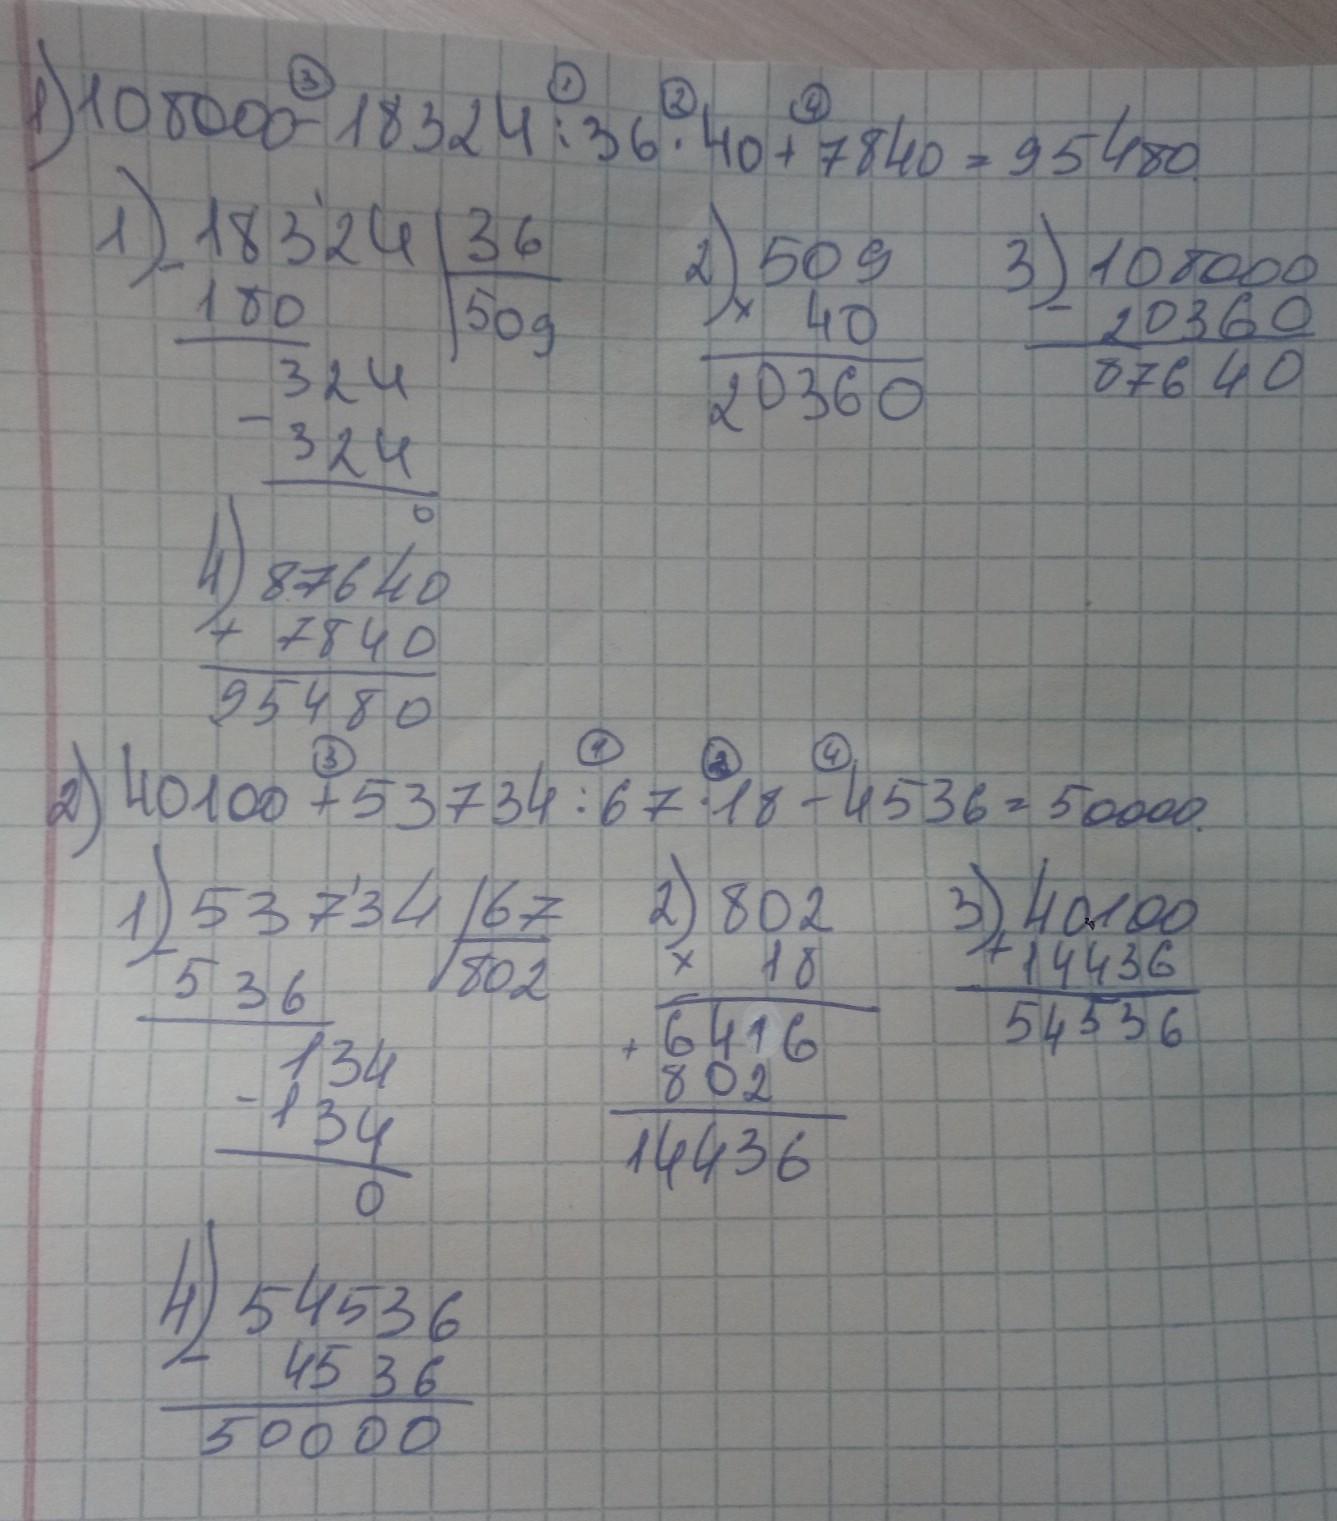 ③ ① ② ④
1) 108000 - 18324 : 36 · 40 + 7840 = 95480.
1) 18324 | 36 2) 509 3) 108000
- 180 | 509 × 40 - 20360
324 20360 87640
- 324
0
4) 87640
+ 7840
95480
③ ① ② ④
2) 40100 + 53734 : 67 · 18 - 4536 = 50000.
1) 53734 | 67 2) 802 3) 40100
- 536 | 802 × 18 + 14436
134 + 6416 54536
- 134 802
0 14436
4) 54536
- 4536
50000